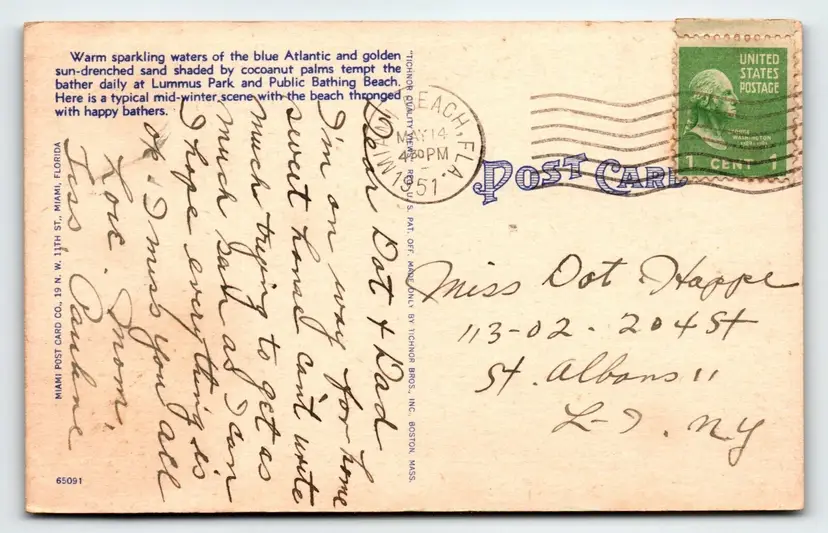 Warm sparkling waters of the blue Atlantic and golden
sun-drenched sand shaded by cocoanut palms tempt the
bather daily at Lummus Park and Public Bathing Beach.
Here is a typical mid-winter scene with the beach thronged
with happy bathers.
Dear Dot & Dad
I'm on way for home
sweet home can't write
much trying to get as
much sun as I can
I hope everything is
ok. I miss you all
Love. Mom,
Tess, Pauline
MIAMI POST CARD CO., 19 N. W. 11TH ST., MIAMI, FLORIDA
65091
"TICHNOR QUALITY VIEWS," REG. U. S. PAT. OFF. MADE ONLY BY TICHNOR BROS., INC., BOSTON, MASS.
MIAMI BEACH, FLA.
MAY 14
4 30 PM
1951
POST CARD
UNITED
STATES
POSTAGE
WASHINGTON
1 CENT 1
Miss Dot Happe
113-02 - 204 St
St. Albans 11
L-I. NY